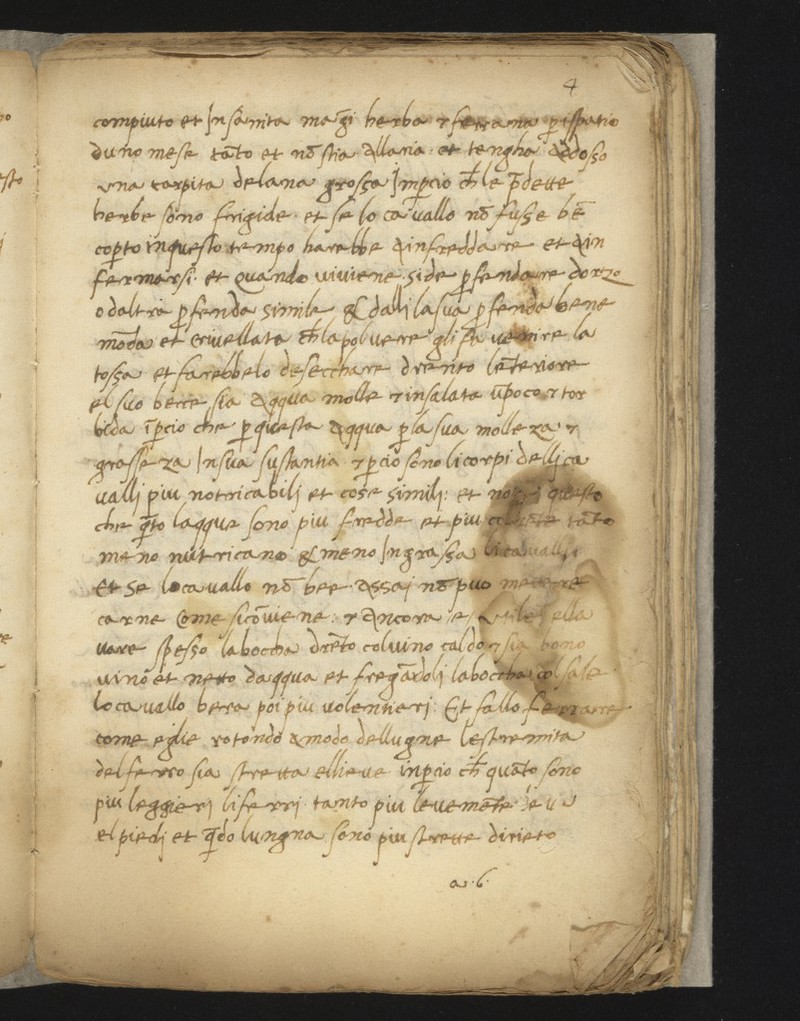 4
compiuto et Insanita māgi herba & ferrana p ispatio
duno mese tāto et nō stia allaria et tengha adosso
una carpita delana grossa Impcio ch̄ le p̄dette
herbe sono frigide et se lo cavallo nō fusse bē
copto inquesto tempo harebbe a infreddare et a in
fermarsi et quando viviene side pfendare dorzo
o daltra pfenda simile & dalli lasua pfenda bene
mōda et crivellata ch̄ lapolvere gli fa venire la
tossa et farebbelo deseccare drento lēteriore
el suo bere sia aqqua molle & insalata ūpoco & tor
bida īpcio che p questa aqqua p la sua molleza &
grasseza Insua sustantia & pcio sono licorpi dellj ca
vallj piu notricabilj et cose similj: et questo
che q̄to laqque sono piu fredde et piu tāto
meno nutricano & meno Ingrassa li cavallj
Et se locavallo nō bee assaj nō puo mettere
carne come sicōviene: & ancora e utile ella
vare spesso labocha drēto colvino caldo & sia bono
vino et netto daqqua et fregārdoli labocha col sale
locavallo bera poi piu volentierj: Et fallo ferrare
come eglie rotondo amodo dellugne lestremita
delferro sia stretta ellieve inpcio ch̄ quāto sono
piu leggierj liferrj tanto piu levemāte
el piedj et q̄do lungna sono piu strette dirieto
a·6·